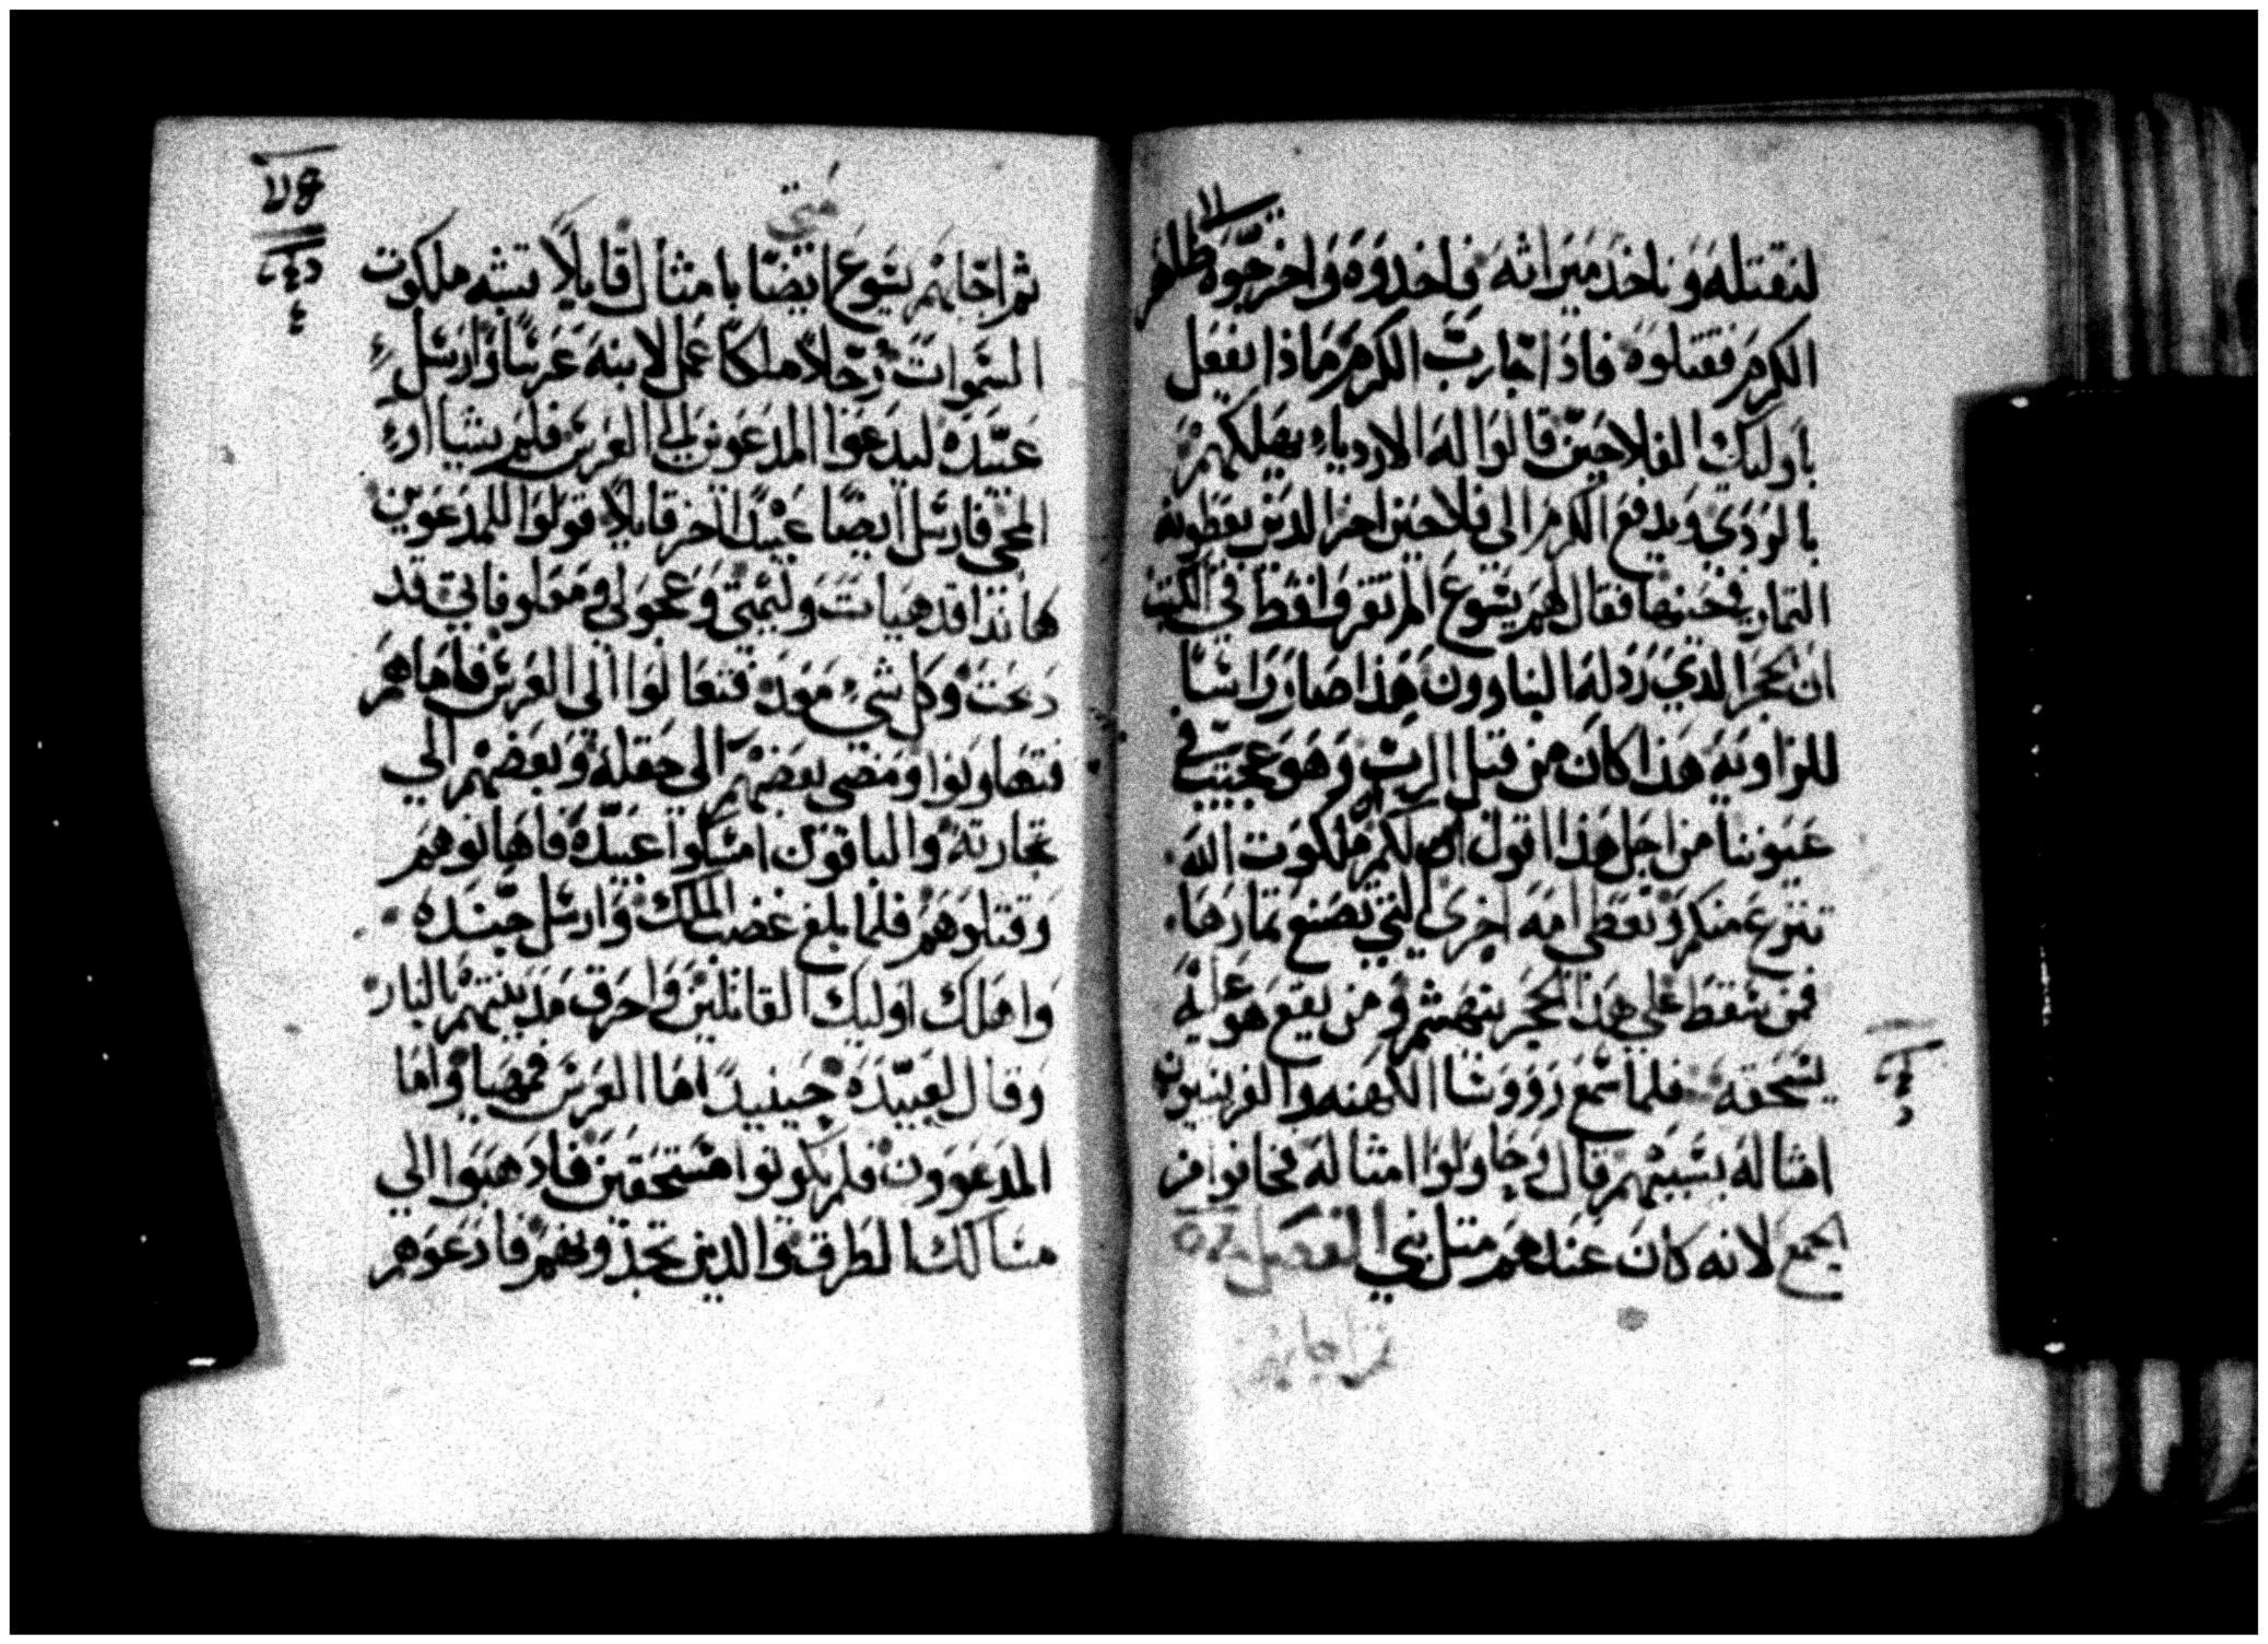 لنقتله وناخذ ميراثه فاخدوه واخرجوه الي ظاهر
الكرم فقتلوه فاذا جا رب الكرم ماذا يفعل
باوليك الفلاحين قالوا له الاردياء يهلكهم
بالردي ويدفع الكرم الي فلاحين اخر الدين يعطونه
التمار في حينها فقال لهم يسوع الم تقروا قط في الكتب
ان الحجر الدي ردله البناوون هذا صار راسا
للزاويه هذا كان من قبل الرب وهو عجيب في
عيوننا من اجل هذا اقول لكم ان ملكوت الله
تنزع منكم وتعطى امه اخرى التي تصنع تمارها
فمن سقط على هذا الحجر يتهشم ومن يقع هو عليه
يسحقه فلما سمع رووسا الكهنه والفريسيون
امثاله بسببهم قال فحاولوا امثاله فخافوا من
الجمع لانه كان عندهم متل نبي الفصل
ثم اجابهم
متي
ثم اجابهم يسوع ايضا بامثال قايلا تشبه ملكوت
السموات رجلا ملكا عمل لابنه عرسا وارسل
عبيده ليدعوا المدعوين الى العرس فلم يشاا
المجي فارسل ايضا عبيدا اخر قايلا قولوا للمدعوين
هانذا قد هيات وليمتي وعجولي ومعلوفاتي قد
دبحت وكل شي معد فتعالوا الى العرس فاما هم
فتهاونوا ومضى بعضهم الى حقله وبعضهم الي
تجارته والباقون امسكوا عبيده فاهانوهم
وقتلوهم فلما بلغ غضب الملك وارسل جنده
واهلك اوليك القاتلين واحرق مدينتهم بالنار
وقال لعبيده حينيد اما العرس فمهيا واما
المدعوون فلم يكونوا مستحقين فادهبوا الي
مسالك الطرق والدين تجدونهم فادعوهم